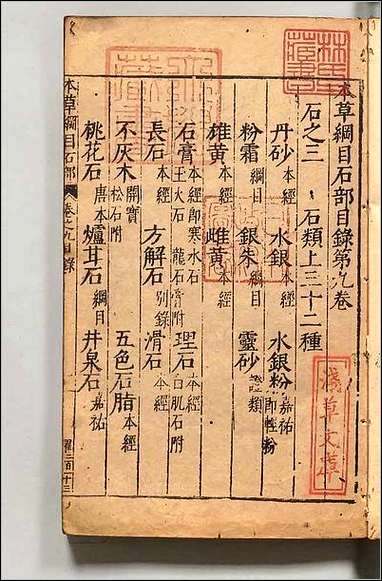 本草綱目石部目錄第九卷
石之三 石類上三十二種
丹砂 本經 水銀 本經 水銀粉 嘉祐 即輕粉
粉霜 綱目 銀朱 綱目 靈砂 證類
雄黃 本經 雌黃 本經
石膏 本經即寒水石 玉火石 龍石膏附 理石 本經 白肌石附
長石 本經 方解石 別錄 滑石 本經
不灰木 開寶 松石附 五色石脂 本經
桃花石 唐本 爐甘石 綱目 井泉石 嘉祐
本草綱目石部 卷之九目錄
淺草文庫